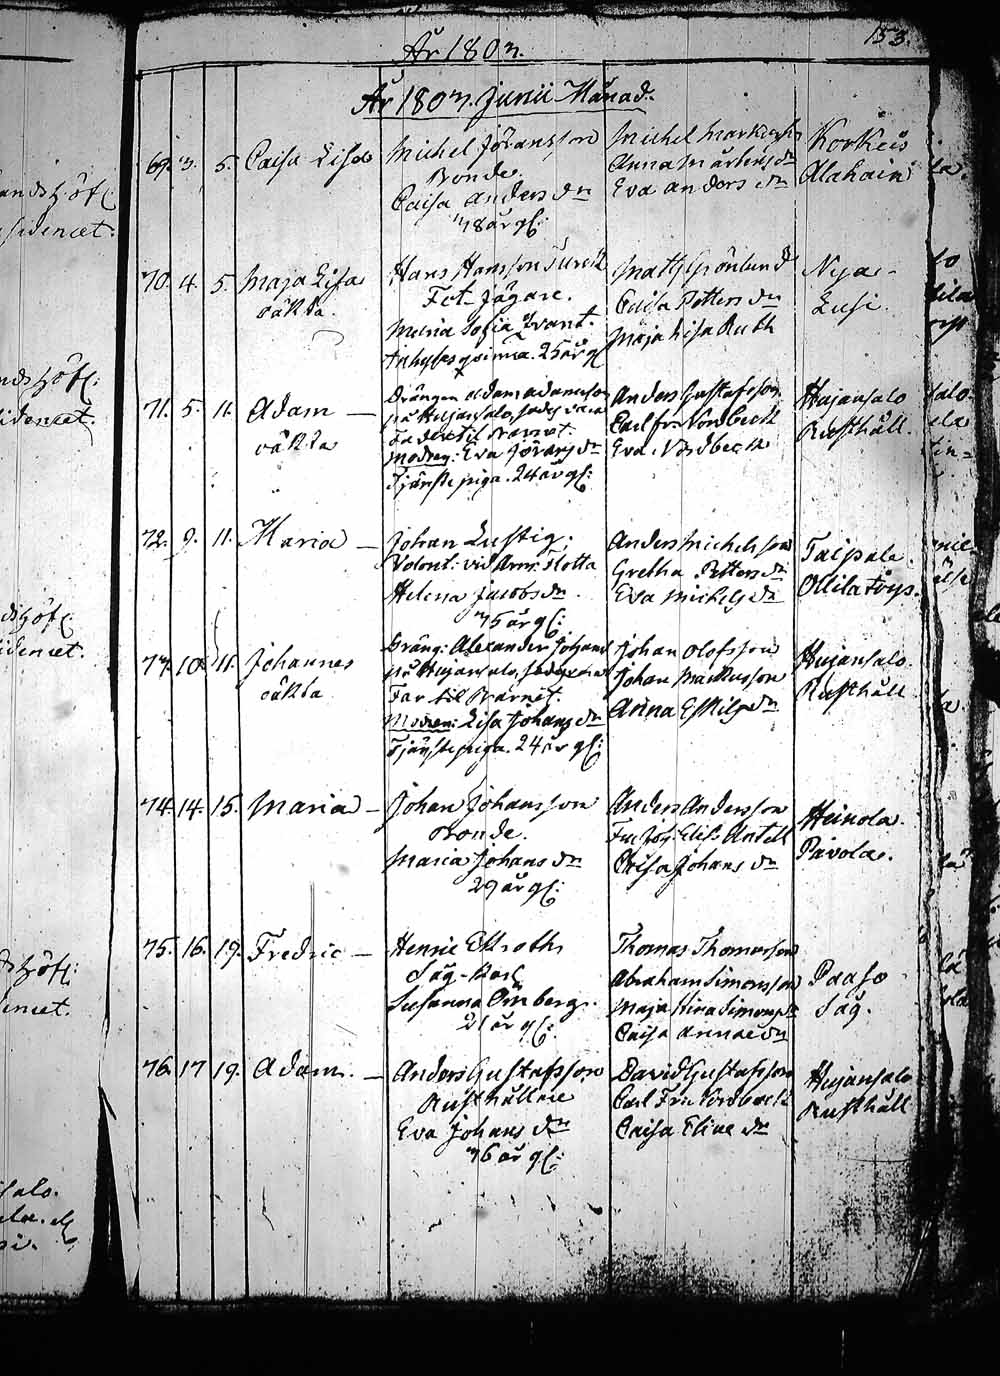 År 1803.
153.
År 1803. Junii Månad.
69. 3. 5. Caisa Lisa
Michel Jöransson
Bonde.
Caisa Anders dn
38 år gl:
Michel Markusson
Anna Mårtens dn
Eva Anders dn
Korkeis
Alahain
70. 4. 5. Maja Lisa
oäkta.
Hans Hansson
Fot-Jägare.
Maria Sofia Brant.
Inhyses qvinna. 25 år gl
Matts Grönlund
Caisa Petters dn
Maja Lisa Ruth
Nyae-
Lusi.
71. 5. 11. Adam —
oäkta
Drängen Adam Adamsson
på Hujansalo, sades vara
fader til Barnet.
Modren: Eva Jörans dn
Tjänste piga. 24 år gl:
Anders Gustafsson
Carl Fr. Nordbeck
Eva Nordbeck
Hujansalo
Rusthåll.
72. 9. 11. Maria —
Johan Lustig:
Volont: vid Arm: Flotta
Helena Jacobs dn.
35 år gl:
Anders Michelsson
Gretha Petters dn
Eva Michels dn
Taipale
Ollila torp.
73. 10. 11. Johannes
oäkta
Dräng: Alexander Johans
på Hujansalo, sades vara
Far til Barnet.
Modren: Lisa Johans dn
Tjänste piga. 24 år gl:
Johan Olofsson
Johan Markusson
Anna Eskils dn
Hujansalo.
Rusthåll
74. 14. 15. Maria —
Johan Johansson
Bonde.
Maria Johans dn
29 år gl:
Anders Andersson
Elis: Antell
Caisa Johans dn
Heinola
Pavola.
75. 16. 19. Fredric —
Henric Ellroth
Såg-Karl
Susanna Örnberg.
21 år gl:
Thomas Thomasson
Abraham Simonsson
Maja Stina Simons dn
Caisa Annae dn
Paaso
Såg.
76. 17 19. Adam. —
Anders Gustafsson
Rusthållare
Eva Johans dn
36 år gl:
David Gustafsson
Carl Fr. Nordbeck
Caisa Eliae dn
Hujansalo
Rusthåll